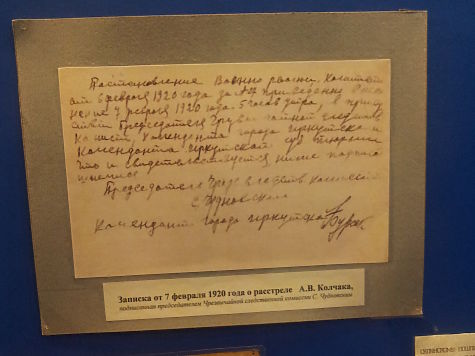 Постановление Военно револ. Комитета
от 6 февраля 1920 года за №9 приведено в испол
нение 7 февраля 1920 года 5 часов утра, в присут
ствии Председателя Чрезвычайной следств.
Комиссии, Коменданта города Иркутска и
Коменданта Иркутской тюрьмы
что и свидетельствуется ниже подписа
вшимися
Председатель Чрезв следств комиссии
С Чудновский
Комендант города Иркутска Бурсак
Записка от 7 февраля 1920 года о расстреле А.В. Колчака,
подписанная председателем Чрезвычайной следственной комиссии С. Чудновским